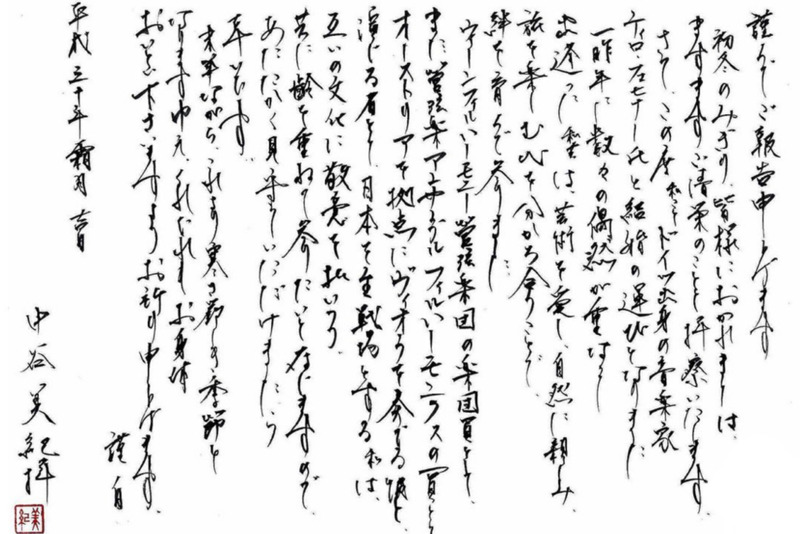 謹んでご報告申し上げます
初冬のみぎり、皆様におかれましては、
ますますご清栄のことと拝察いたします。
さて、この度私ことドイツ出身の音楽家
ティロ・フェヒナー氏と結婚の運びとなりました
一昨年に数々の偶然が重なり
出逢った私達は、芸術を愛し、自然に親しみ、
旅を楽しむ心を分かち合うことで、
絆を育んで参りました
ウィーンフィルハーモニー管弦楽団の楽団員として
また管弦楽アンサンブルフィルハーモニクスの一員として
オーストリアを拠点にヴィオラを奏でる彼と、
演じる者として日本を主戦場とする私は、
互いの文化に敬意を払いつつ
共に齢を重ねて参りたいと存じますので
あたたかく見守っていただけましたら
幸いです。
末筆ながら、これより寒さ厳しき季節と
なりますゆえ、くれぐれもお身体
おいとい下さいますようお祈り申し上げます。
謹白
平成三十年霜月吉日
中谷美紀拝
美紀